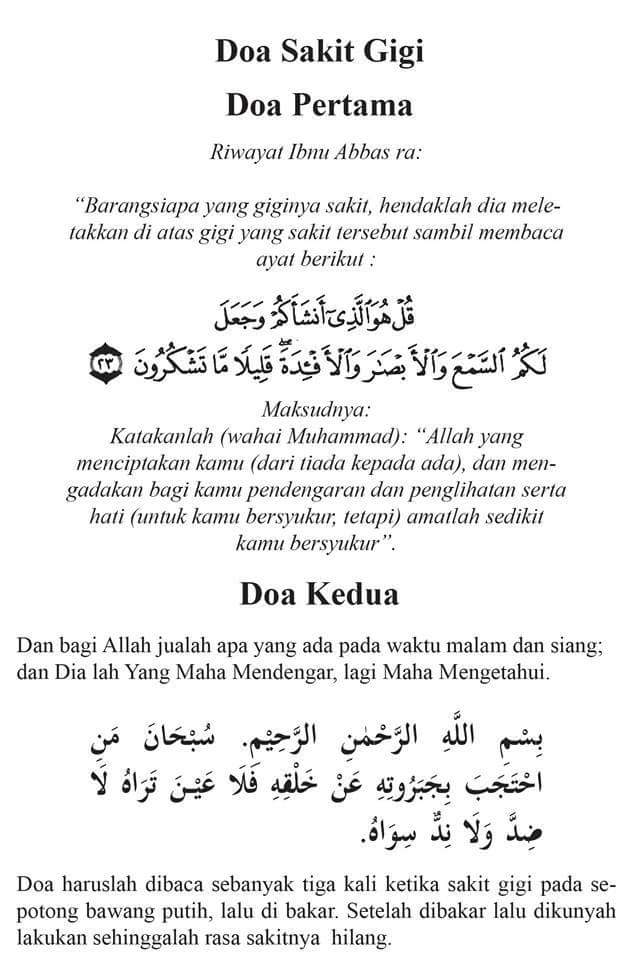 Doa Sakit Gigi
Doa Pertama
Riwayat Ibnu Abbas ra:
“Barangsiapa yang giginya sakit, hendaklah dia mele-
takkan di atas gigi yang sakit tersebut sambil membaca
ayat berikut :
قُلْ هُوَ ٱلَّذِىٓ أَنشَأَكُمْ وَجَعَلَ
لَكُمُ ٱلسَّمْعَ وَٱلْأَبْصَـٰرَ وَٱلْأَفْـِٔدَةَ ۖ قَلِيلًا مَّا تَشْكُرُونَ ٢٣
Maksudnya:
Katakanlah (wahai Muhammad): “Allah yang
menciptakan kamu (dari tiada kepada ada), dan men-
gadakan bagi kamu pendengaran dan penglihatan serta
hati (untuk kamu bersyukur, tetapi) amatlah sedikit
kamu bersyukur”.
Doa Kedua
Dan bagi Allah jualah apa yang ada pada waktu malam dan siang;
dan Dia lah Yang Maha Mendengar, lagi Maha Mengetahui.
بِسْمِ اللَّهِ الرَّحْمٰنِ الرَّحِيْمِ. سُبْحَانَ مَنِ
احْتَجَبَ بِجَبَرُوتِهِ عَنْ خَلْقِهِ فَلَا عَيْنَ تَرَاهُ لَا
ضِدَّ وَلَا نِدٌّ سِوَاهُ.
Doa haruslah dibaca sebanyak tiga kali ketika sakit gigi pada se-
potong bawang putih, lalu di bakar. Setelah dibakar lalu dikunyah
lakukan sehinggalah rasa sakitnya hilang.